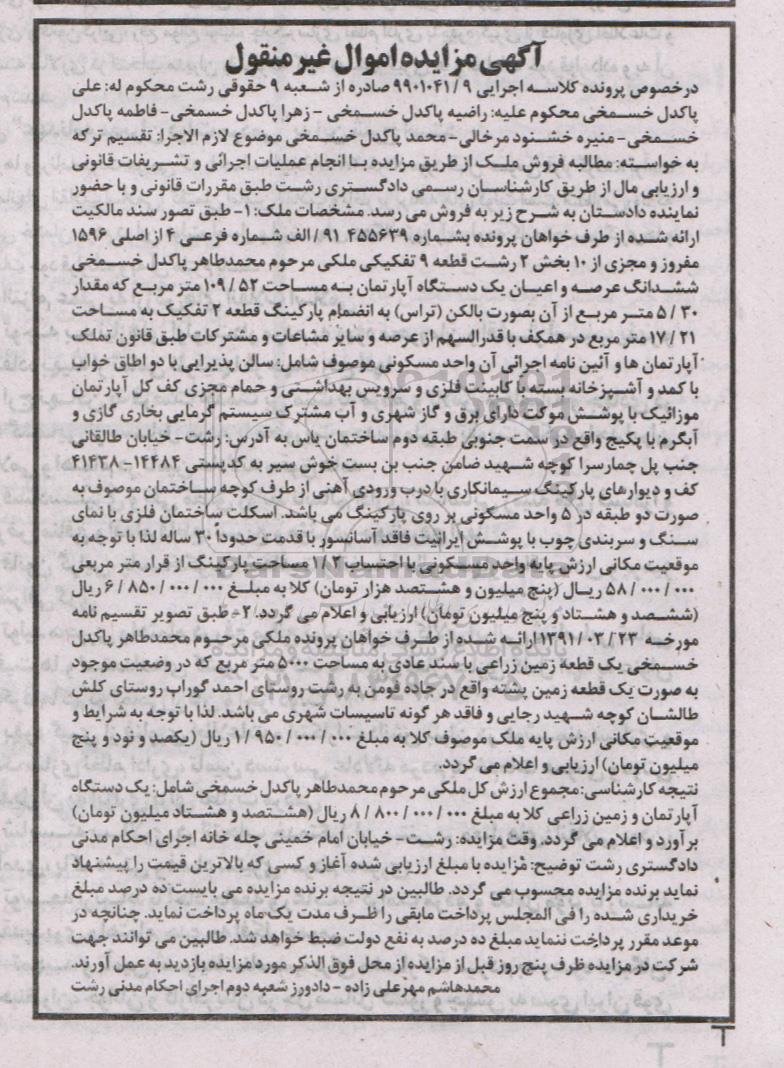 آگهی مزایده اموال غیر منقول
درخصوص پرونده کلاسه اجرایی ۹ / ۹۹۰۱۰۴۱ صادره از شعبه ۹ حقوقی رشت محکوم له: علی
پاکدل خسمخی محکوم علیه: راضیه پاکدل خسمخی - زهرا پاکدل خسمخی - فاطمه پاکدل
خسمخی - منیره خشنود مرخالی - محمد پاکدل خسمخی موضوع لازم الاجرا: تقسیم ترکه
به خواسته: مطالبه فروش ملک از طریق مزایده با انجام عملیات اجرائی و تشریفات قانونی
و ارزیابی مال از طریق کارشناسان رسمی دادگستری رشت طبق مقررات قانونی و با حضور
نماینده دادستان به شرح زیر به فروش می رسد. مشخصات ملک: ۱- طبق تصور سند مالکیت
ارائه شده از طرف خواهان پرونده بشماره ۴۵۵۶۳۹ ۹۱ / الف شماره فرعی ۴ از اصلی ۱۵۹۶
مفروز و مجزی از ۱۰ بخش ۲ رشت قطعه ۹ تفکیکی ملکی مرحوم محمدطاهر پاکدل خسمخی
ششدانگ عرصه و اعیان یک دستگاه آپارتمان به مساحت ۵۲ / ۱۰۹ متر مربع که مقدار
۳۰ / ۵ متر مربع از آن بصورت بالکن (تراس) به انضمام پارکینگ قطعه ۲ تفکیک به مساحت
۲۱ / ۱۷ متر مربع در همکف با قدرالسهم از عرصه و سایر مشاعات و مشترکات طبق قانون تملک
آپارتمان ها و آئین نامه اجرائی آن واحد مسکونی موصوف شامل: سالن پذیرایی با دو اطاق خواب
با کمد و آشپزخانه بسته با کابینت فلزی و سرویس بهداشتی و حمام مجزی کف کل آپارتمان
موزائیک با پوشش موکت دارای برق و گاز شهری و آب مشترک سیستم گرمایی بخاری گازی و
آبگرم با پکیج واقع در سمت جنوبی طبقه دوم ساختمان یاس به آدرس: رشت - خیابان طالقانی
جنب پل چمارسرا کوچه شهید ضامن جنب بن بست خوش سیر به کدپستی ۱۴۴۸۴- ۴۱۴۳۸
کف و دیوارهای پارکینگ سیمانکاری با درب ورودی آهنی از طرف کوچه ساختمان موصوف به
صورت دو طبقه در ۵ واحد مسکونی بر روی پارکینگ می باشد. اسکلت ساختمان فلزی با نمای
سنگ و سربندی چوب با پوشش ایرانیت فاقد آسانسور با قدمت حدوداً ۳۰ ساله لذا با توجه به
موقعیت مکانی ارزش پایه واحد مسکونی با احتساب ۱/۲ مساحت پارکینگ از قرار متر مربعی
۵۸ / ۰۰۰ / ۰۰۰ ریال (پنج میلیون و هشتصد هزار تومان) کلا به مبلغ ۰۰۰ / ۰۰۰ / ۸۵۰ / ۶ ریال
(ششصد و هشتاد و پنج میلیون تومان) ارزیابی و اعلام می گردد. ۲- طبق تصویر تقسیم نامه
مورخه ۲۳ / ۰۳ / ۱۳۹۱ ارائه شده از طرف خواهان پرونده ملکی مرحوم محمدطاهر پاکدل
خسمخی یک قطعه زمین زراعی با سند عادی به مساحت ۵۰۰۰ متر مربع که در وضعیت موجود
به صورت یک قطعه زمین پشته واقع در جاده فومن به رشت روستای احمد گوراب روستای کلش
طالشان کوچه شهید رجایی و فاقد هر گونه تاسیسات شهری می باشد. لذا با توجه به شرایط و
موقعیت مکانی ارزش پایه ملک موصوف کلا به مبلغ ۰۰۰ / ۰۰۰ / ۹۵۰ / ۱ ریال (یکصد و نود و پنج
میلیون تومان) ارزیابی و اعلام می گردد.
نتیجه کارشناسی: مجموع ارزش کل ملکی مرحوم محمدطاهر پاکدل خسمخی شامل: یک دستگاه
آپارتمان و زمین زراعی کلا به مبلغ ۰۰۰ / ۰۰۰ / ۸۰۰ / ۸ ریال (هشتصد و هشتاد میلیون تومان)
برآورد و اعلام می گردد. وقت مزایده: رشت - خیابان امام خمینی چله خانه اجرای احکام مدنی
دادگستری رشت توضیح: مزایده با مبلغ ارزیابی شده آغاز و کسی که بالاترین قیمت را پیشنهاد
نماید برنده مزایده محسوب می گردد. طالبین در نتیجه برنده مزایده می بایست ده درصد مبلغ
خریداری شده را فی المجلس پرداخت مابقی را ظرف مدت یک ماه پرداخت نماید. چنانچه در
موعد مقرر پرداخت ننماید مبلغ ده درصد به نفع دولت ضبط خواهد شد. طالبین می توانند جهت
شرکت در مزایده ظرف پنج روز قبل از مزایده از محل فوق الذکر مورد مزایده بازدید به عمل آورند.
محمدهاشم مهرعلی زاده - دادورز شعبه دوم اجرای احکام مدنی رشت